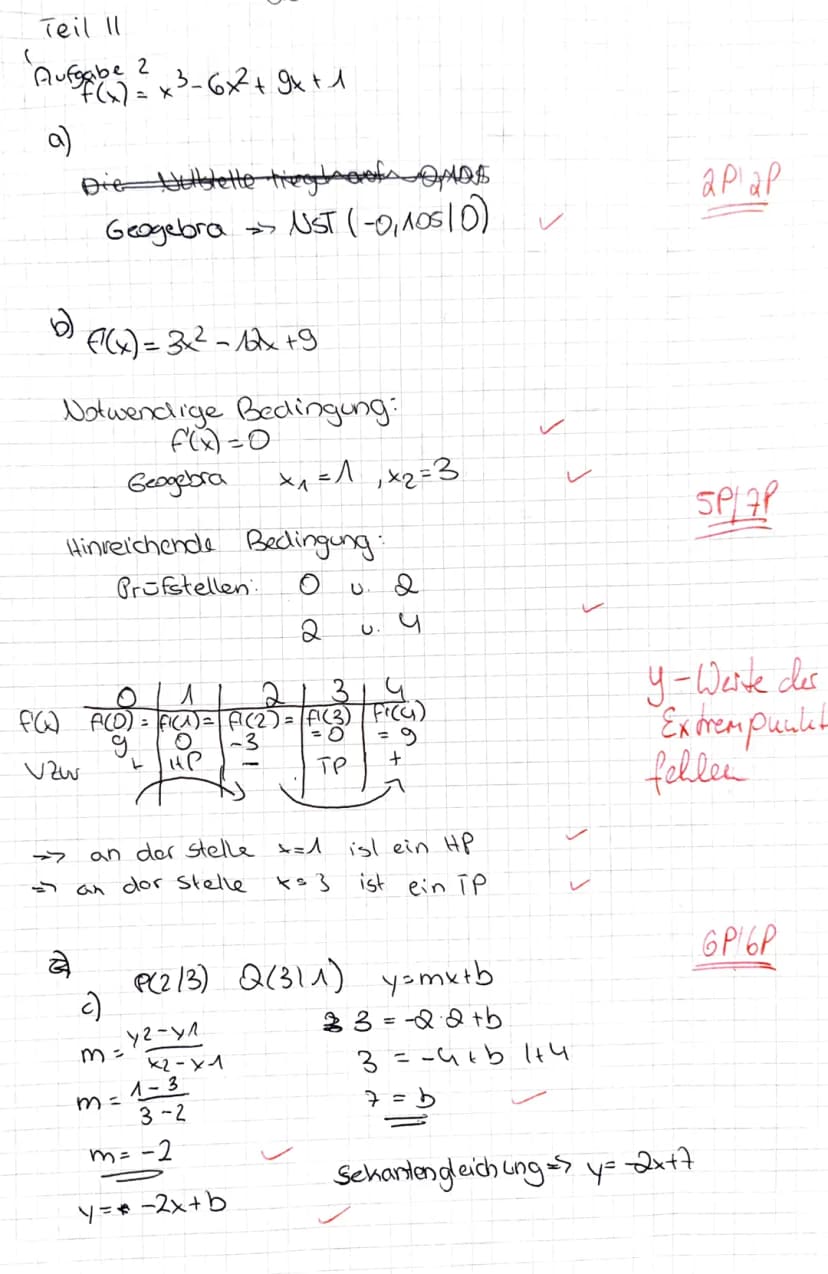 Teil II
Aufgabe 2
f(x) = x³ - 6x² + 9x + 1
a)
2P/2P
Geogebra => NST (-0,105|0) ✓
b) f'(x) = 3x² - 12x + 9
Notwendige Bedingung: ✓
f'(x) = 0
Geogebra x₁ = 1 , x₂ = 3 ✓
5P/7P
Hinreichende Bedingung:
Prüfstellen: 0 u. 2 ✓
2 u. 4
y-Werte der
Extrempunkt
fehlen
0 | 1 | 2 | 3 | 4
f'(x) f'(0) = | f'(1) = | f'(2) = | f'(3) | f'(4)
9 | 0 | -3 | = 0 | = 9
VZW + | HP | - | TP | +
=> an der Stelle x=1 ist ein HP ✓
=> an der Stelle x=3 ist ein TP ✓
6P/6P
P(2/3) Q(3|1) y=mx+b
c)
m = y2-y1 / x2-x1
m = 1-3 / 3-2
m = -2 ✓
y = -2x+b ✓
3 = -2·2+b
3 = -4+b |+4
7 = b ✓
Sekantengleichung => y = -2x+7